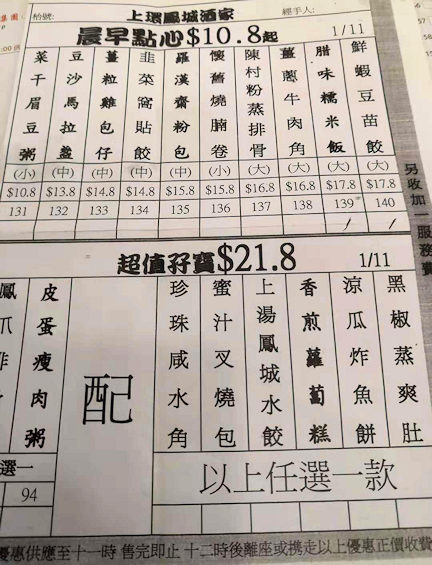 枱號: 上環鳳城酒家 經手人:
晨早點心$10.8起 1/11
鮮蝦豆苗餃 (大) $17.8 140
腊味糯米飯 (大) $17.8 139
薑蔥牛肉角 (大) $16.8 138
陳村粉蒸排骨 (大) $16.8 137
懷舊燒腩卷 (小) $15.8 136
羅漢齋粉包 (中) $15.8 135
韭菜窩貼餃 (中) $14.8 134
薑粒雞包仔 (中) $14.8 133
豆沙馬拉盏 (中) $13.8 132
菜干眉豆粥 (小) $10.8 131
另收加一服務費
超值孖寶$21.8 1/11
黑椒蒸爽肚
涼瓜炸魚餅
香煎蘿蔔糕
上湯鳳城水餃
蜜汁叉燒包
珍珠咸水角
以上任選一款
配
皮蛋瘦肉粥
鳳爪排
選一
94
優惠供應至十一時 售完即止 十二時後離座或携走以上優惠正價收費